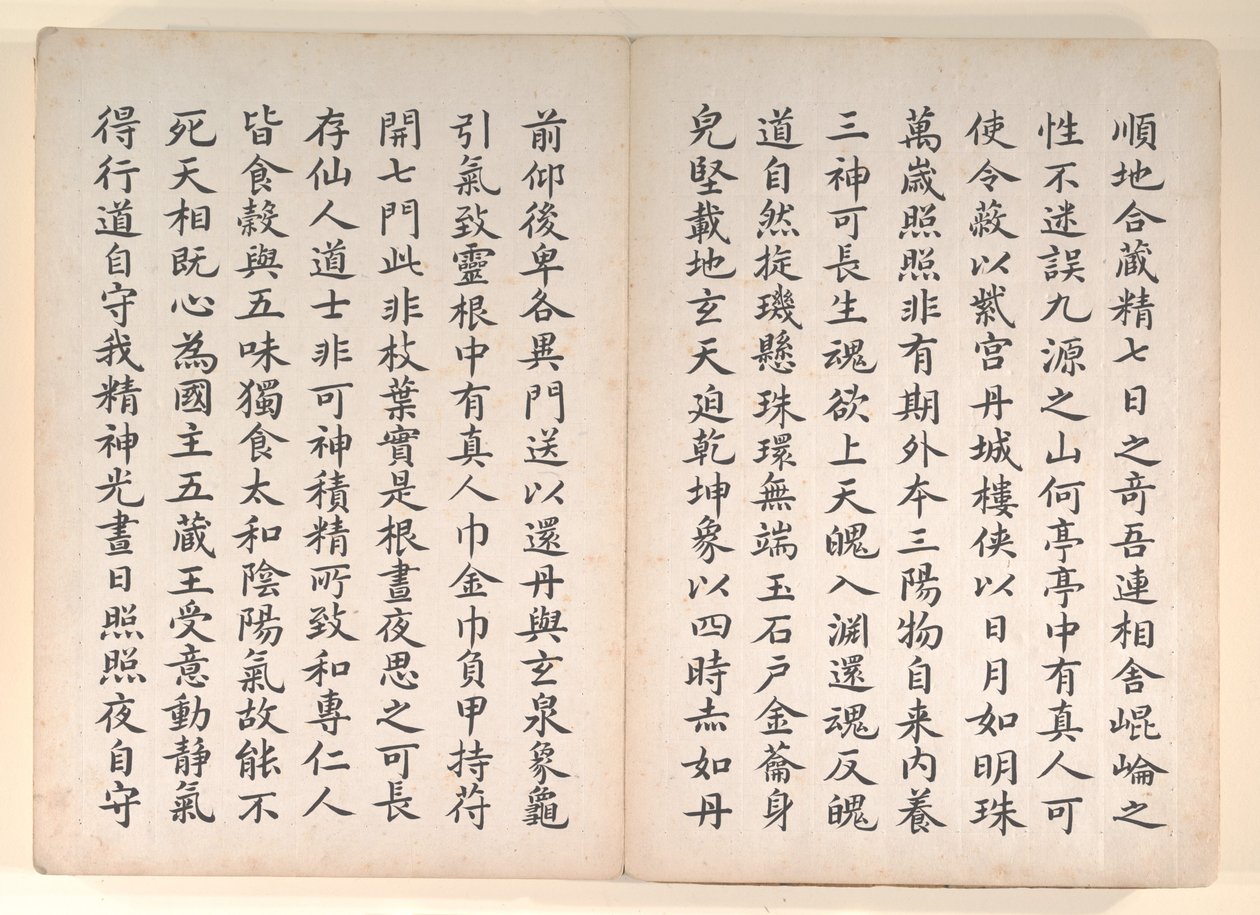 順地合蔵精七日之奇吾連相舎崐崘之
性不迷誤九源之山何亭亭中有真人可
使令蔽以紫宫丹城樓侠以日月如明珠
萬嵗照照非有期外夲三陽物自来内養
三神可長生魂欲上天魄入淵還魂反魄
道自然掟璣懸珠環無端玉石户金蘥身
皃堅載地玄天廹乾坤象以四時赤如丹
前仰後卑各異門送以還丹與玄泉象龜
引氣致靈根中有真人巾金巾負甲持苻
開七門此非枝葉實是根晝夜思之可長
存仙人道士非可神積精所致和專仁人
皆食穀與五味獨食太和陰陽氣故能不
死天相既心為國主五蔵王受意動静氣
得行道自守我精神光晝日照照夜自守